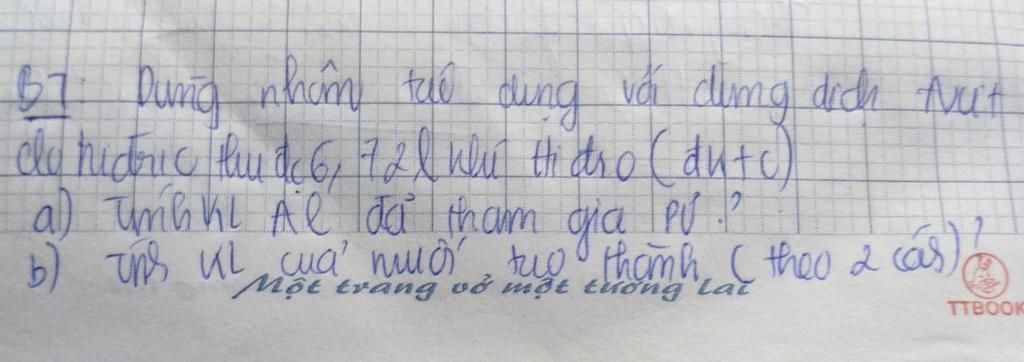 B7: Dùng nhôm tác dụng với dung dịch Axit
clo hiđric thu đc 6,72l khí hiđro (đktc)
a) Tính KL Al đã tham gia PƯ?
b) Tính KL của muối tạo thành (theo 2 cách)?
Một trang vở một tương lai
TTBOOK